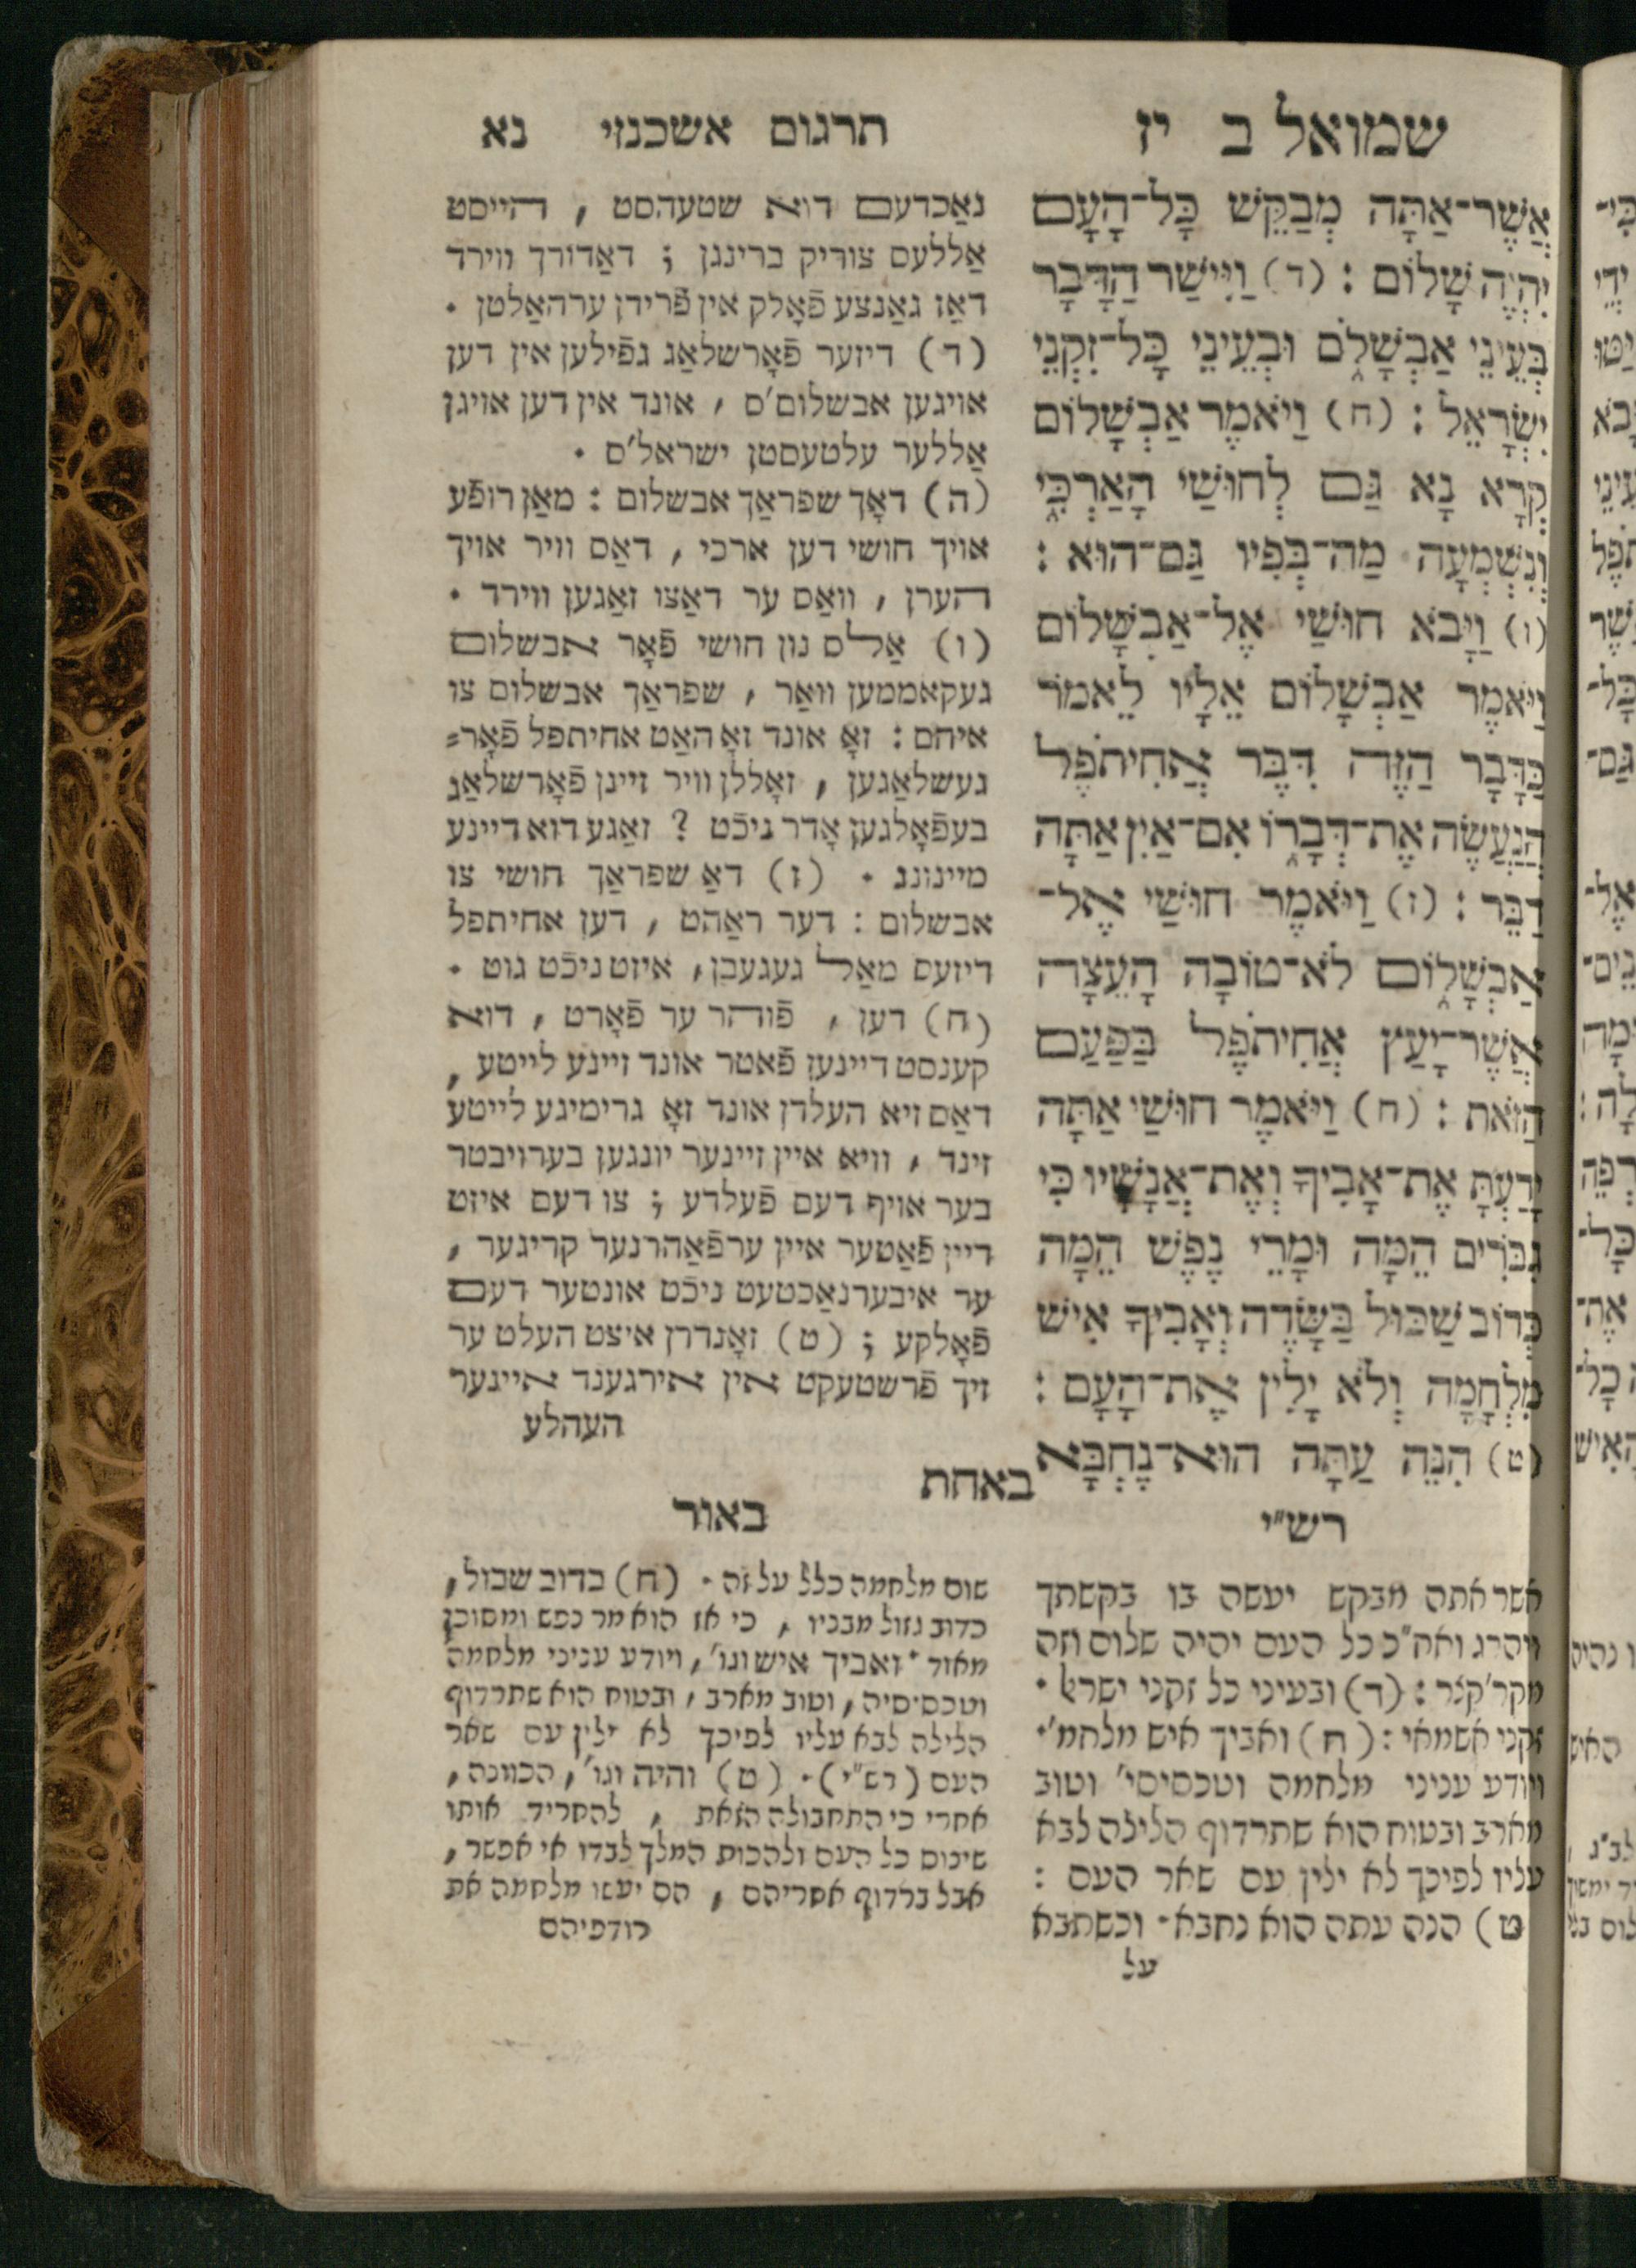 שמואל ב יז
אֲשֶׁר־אַתָּה מְבַקֵּשׁ כָּל־הָעָם
יִהְיֶה שָׁלוֹם : (ד) וַיִּישַׁר הַדָּבָר
בְּעֵינֵי אַבְשָׁלֹם וּבְעֵינֵי כָּל־זִקְנֵי
יִשְׂרָאֵל : (ה) וַיֹּאמֶר אַבְשָׁלוֹם
קְרָא נָא גַּם לְחוּשַׁי הָאַרְכִּי
וְנִשְׁמְעָה מַה־בְּפִיו גַּם־הוּא :
(ו) וַיָּבֹא חוּשַׁי אֶל־אַבְשָׁלוֹם
וַיֹּאמֶר אַבְשָׁלוֹם אֵלָיו לֵאמֹר
כַּדָּבָר הַזֶּה דִּבֶּר אֲחִיתֹפֶל
הֲנַעֲשֶׂה אֶת־דְּבָרוֹ אִם־אַיִן אַתָּה
דַבֵּר : (ז) וַיֹּאמֶר חוּשַׁי אֶל־
אַבְשָׁלוֹם לֹא־טוֹבָה הָעֵצָה
אֲשֶׁר־יָעַץ אֲחִיתֹפֶל בַּפַּעַם
הַזֹּאת : (ח) וַיֹּאמֶר חוּשַׁי אַתָּה
יָדַעְתָּ אֶת־אָבִיךָ וְאֶת־אֲנָשָׁיו כִּי
גִבֹּרִים הֵמָּה וּמָרֵי נֶפֶשׁ הֵמָּה
כְּדוֹב שַׁכּוּל בַּשָּׂדֶה וְאָבִיךָ אִישׁ
מִלְחָמָה וְלֹא יָלִין אֶת־הָעָם :
(ט) הִנֵּה עַתָּה הוּא־נֶחְבָּא
באחת
תרגום אשכנזי נא
נאַכדעם דוא שטעהסט , הייסט
אַללעס צוריק ברינגן ; דאַדורך ווירד
דאַז גאַנצע פֿאָלק אין פֿרידן ערהאַלטן .
(ד) דיזער פֿאָרשלאַג גפֿילען אין דען
אויגען אבשלום'ס , אונד אין דען אויגן
אַללער עלטעסטן ישראל'ס .
(ה) דאָך שפראַך אבשלום : מאַן רופֿע
אויך חושי דען ארכי , דאַס וויר אויך
הערן , וואַס ער דאַצו זאַגען ווירד .
(ו) אַלס נון חושי פֿאָר אבשלום
געקאממען וואַר , שפראַך אבשלום צו
איהם : זאָ אונד זאָ האַט אחיתפל פֿאָר=
געשלאַגען , זאָללן וויר זיינן פֿאָרשלאַג
בעפֿאָלגען אָדר ניכֿט ? זאַגע דוא דיינע
מיינונג . (ז) דאַ שפראַך חושי צו
אבשלום : דער ראַהט , דען אחיתפל
דיזעס מאַל געגעבן , איזט ניכֿט גוט .
(ח) דען , פֿוהר ער פֿאָרט , דוא
קענסט דיינען פֿאטר אונד זיינע לייטע ,
דאַס זיא העלדן אונד זאָ גרימיגע לייטע
זינד , וויא איין זיינער יונגען בערויבטר
בער אויף דעם פֿעלדע ; צו דעם איזט
דיין פֿאַטער איין ערפֿאַהרנער קריגער ,
ער איבערנאַכטעט ניכֿט אונטער דעם
פֿאָלקע ; (ט) זאָנדרן איצט העלט ער
זיך פֿרשטעקט אין אירגענד אייגער
העהלע
רש״י
אשר אתה מבקש יעשה בו בקשתך
ויהרג ואח״כ כל העם יהיה שלום וזה
מקר' קצר : (ד) ובעיני כל זקני ישראל .
זקני אשמאי : (ח) ואביך איש מלחמ' .
ויודע עניני מלחמה וטכסיסי' וטוב
מארב ובטוח הוא שתרדוף הלילה לבא
עליו לפיכך לא ילין עם שאר העם :
ט) הנה עתה הוא נחבא . וכשתבא
על
באור
שום מלחמה כלל על זה . (ח) כדוב שכול ,
כדוב גזול מבניו , כי אז הוא מר נפש ומסוכן
מאוד . ואביך איש וגו' , ויודע עניני מלחמה
וטכסיסיה , וטוב מארב , ובטוח הוא שתרדוף
הלילה לבא עליו לפיכך לא ילין עם שאר
העם (רש״י) . (ט) והיה וגו' , הכוונה ,
אחרי כי התחבולה הזאת , להחריד אותו
שינוס כל העם ולהכות המלך לבדו אי אפשר ,
אבל ברדוף אחריהם , הם יעשו מלחמה את
רודפיהם